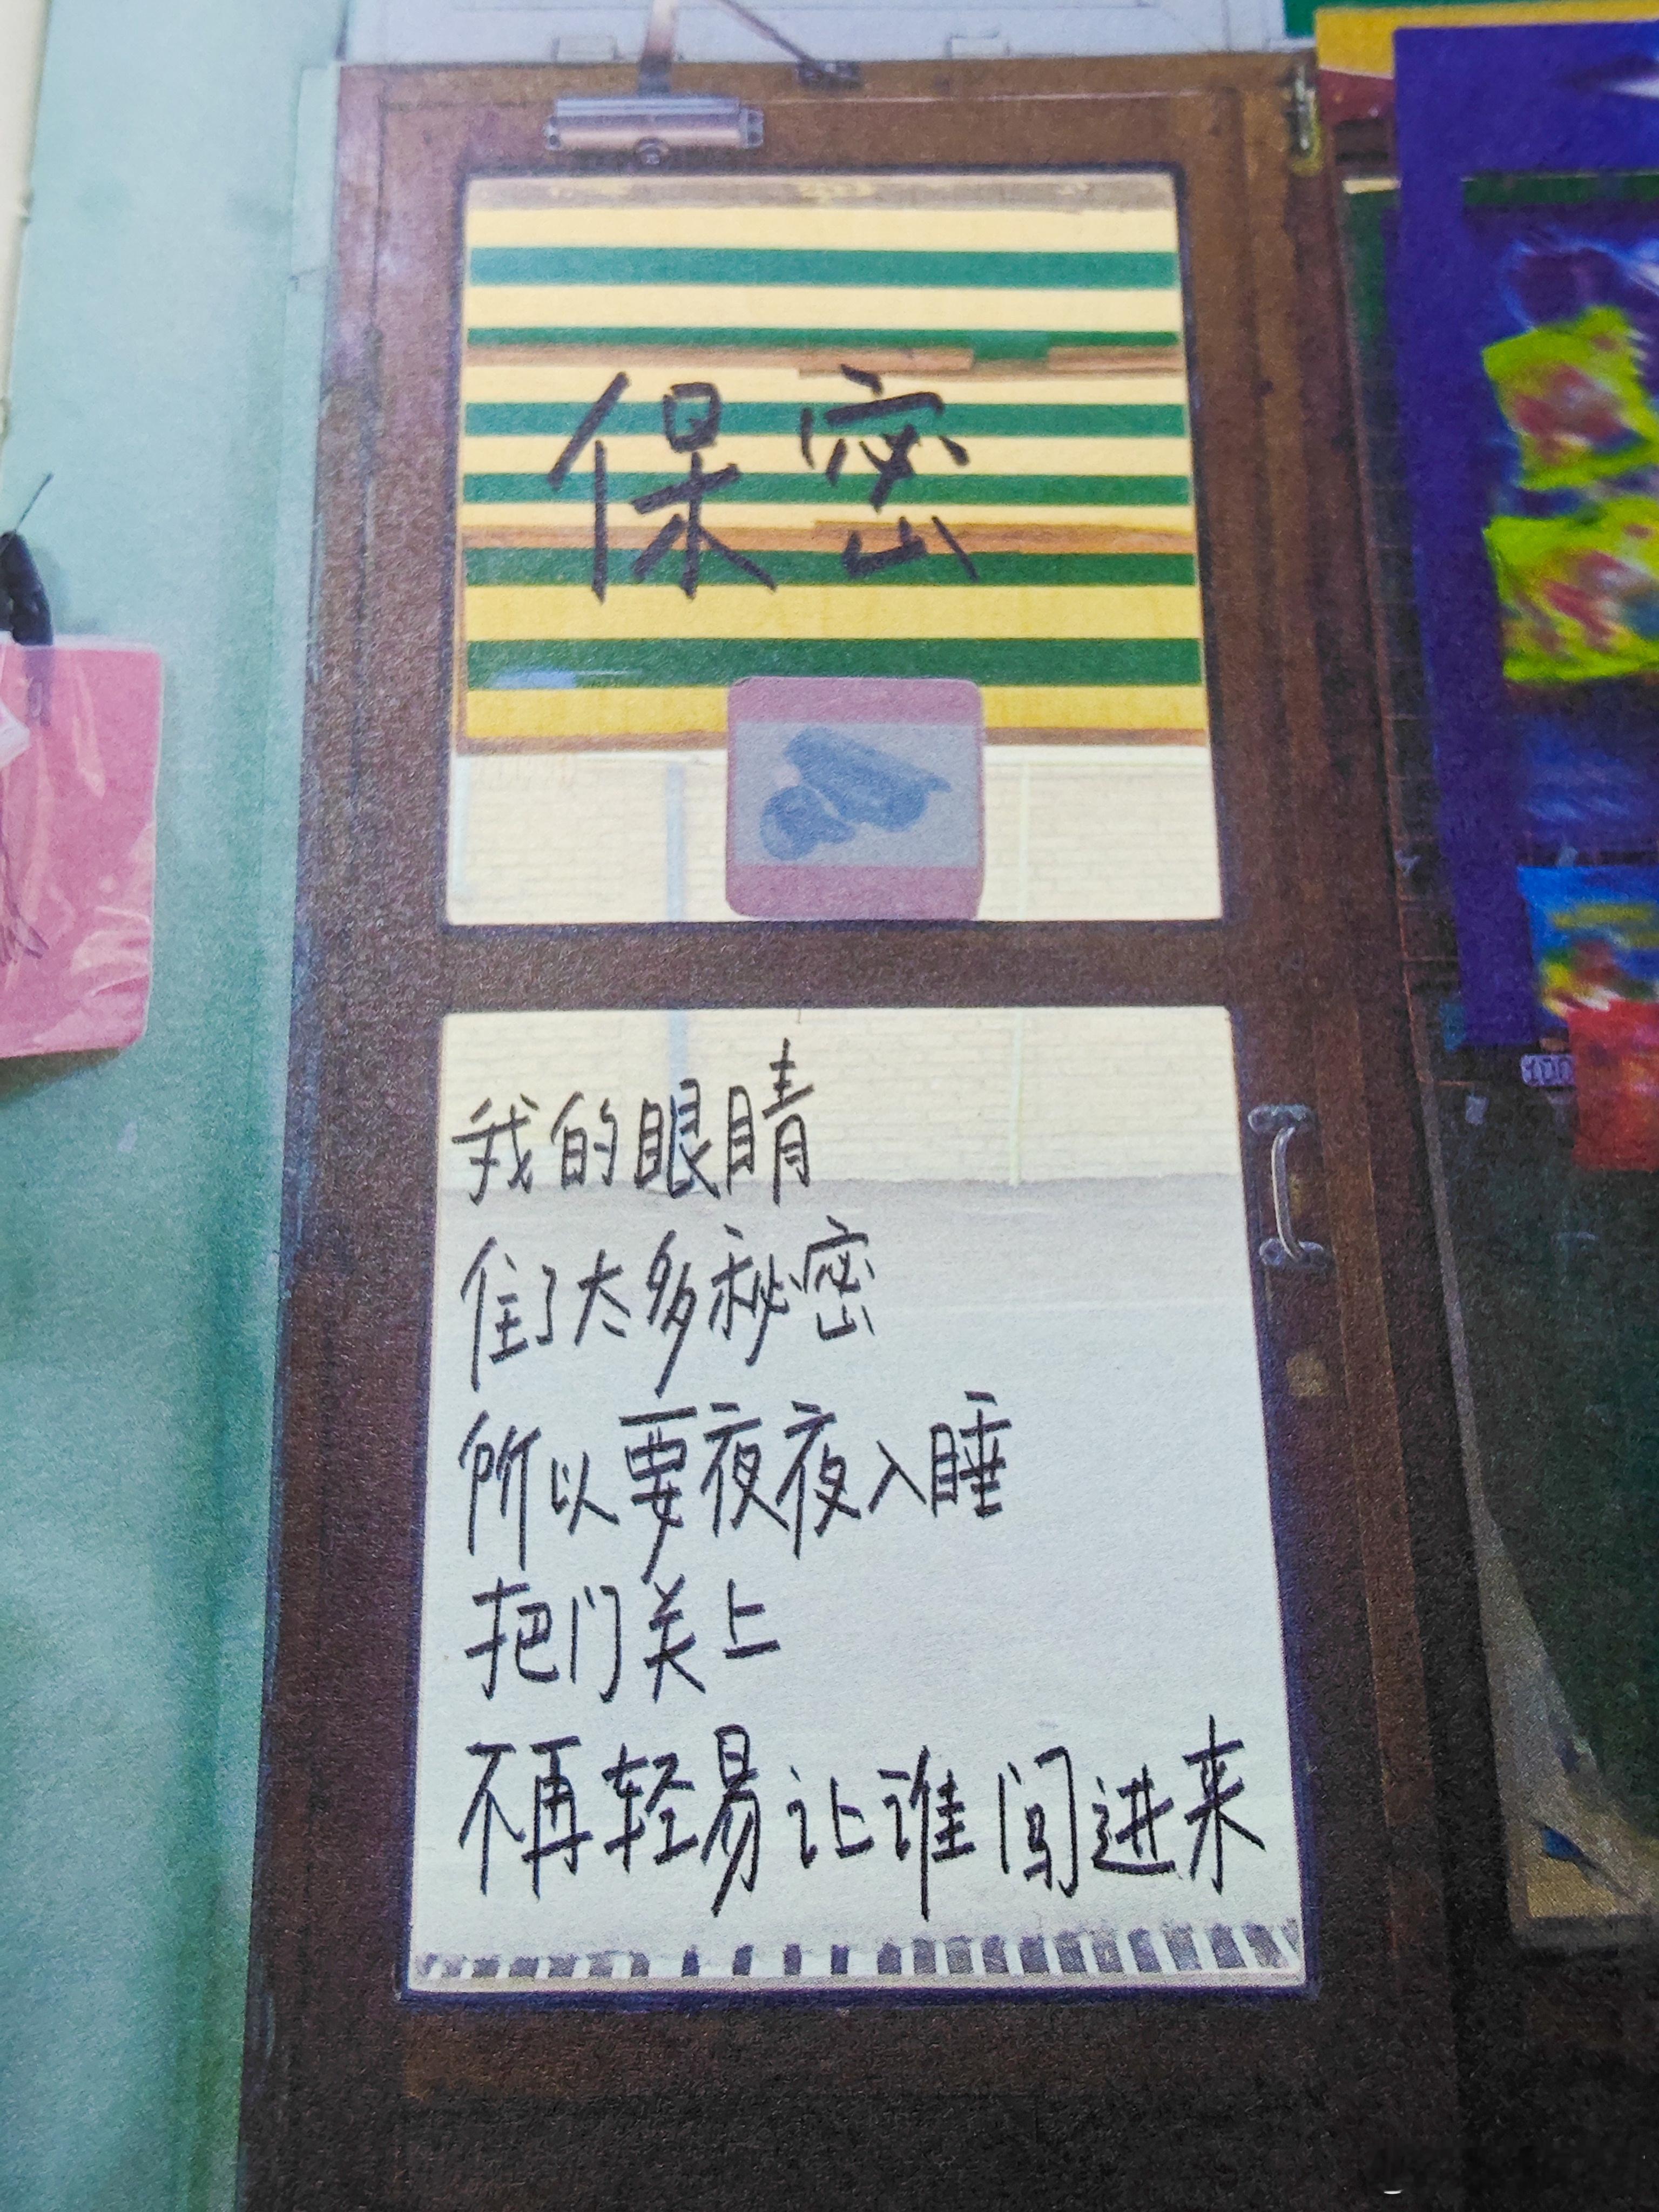 保密
我的眼睛
住了太多秘密
所以要夜夜入睡
把门关上
不再轻易让谁闯进来
100